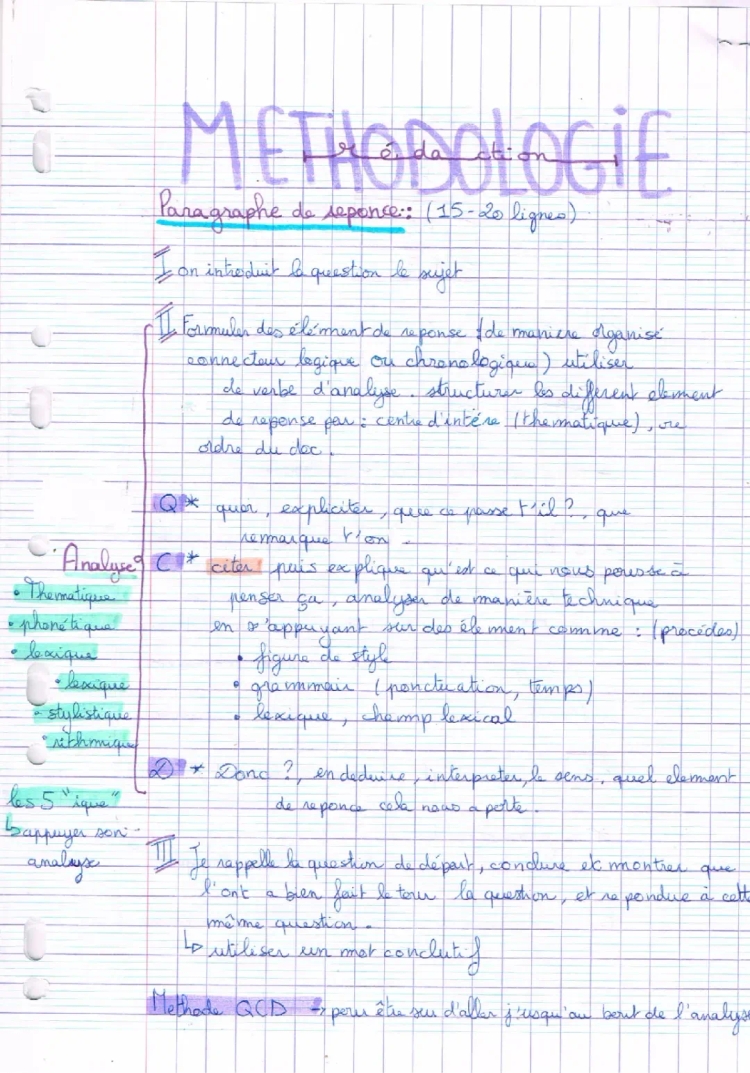 METHODOLOGIE
rédaction
Paragraphe de reponce:: (15-20 lignes)
I on introduit la question le sujet
II Formuler des élément de reponse (de manière organisé
connecteur logique ou chronologique) utiliser
de verbe d'analyse. structurer les different element
de reponse par : centre d'intére (thematique), ou
ordre du doc.
Q * quoi, expliciter, que ce passe t'il ?, que
remarque t'on.
C * citer puis explique qu'est ce qui nous pousse à
penser ça, analyser de manière technique
en s'appuyant sur des élement comme : (procédés)
• figure de style
• grammair (ponctuation, temps)
• lexique, champ lexical
D * Donc ?, en deduire, interpreter, le sens. quel element
de reponce cela nous a porte.
Analyse
• Thematique
• phonétique
• lexique
• lexique
• stylistique
• rithmique
les 5 "ique"
↳ appuyer son
analyse
III Je rappelle la question de départ, conclure et montrer que
l'ont a bien fait le tour la question, et repondue à cette
même question.
↳ utiliser un mot conclutif
Methode QCD → pour être sur d'aller j'usqu'au bout de l'analyse